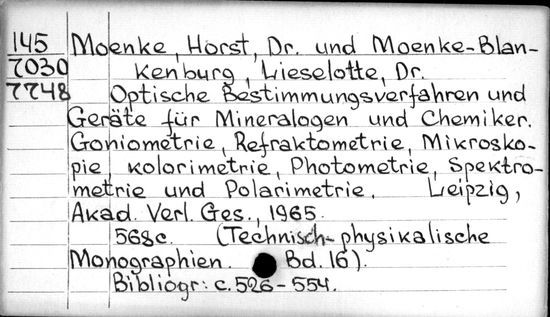 145 Moenke, Horst, Dr. und Moenke-Blan-
7030 kenburg, Lieselotte, Dr.
7748 Optische Bestimmungsverfahren und
Geräte für Mineralogen und Chemiker.
Goniometrie, Refraktometrie, Mikrosko-
pie, kolorimetrie, Photometrie, Spektro-
metrie und Polarimetrie. Leipzig,
Akad. Verl. Ges., 1965.
568c. (Technisch-physikalische
Monographien. Bd. 16).
Bibliogr: c. 526-554.